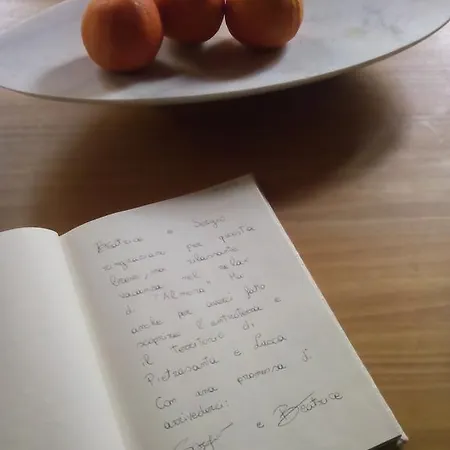 Beatrice e Sergio
ringraziano per questa
breve, ma rilassante
vacanza nel rela-
"Almosa". Ma
anche per averci fatto
scoprire l'entroterra e
il territorio di
Pietrasanta e Lucca
Con una promessa di
arrivederci:
e Beatrice